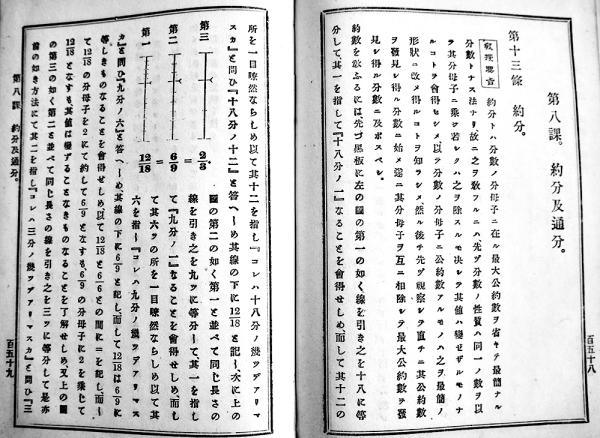 第八課。約分及通分。
第十三條 約分。
約分トハ分數ノ分母子ニ在ル最大公約數ヲ省キテ最簡ナル
分數トナス法ナリ故ニ之ヲ敎フルニハ先ヅ分數ノ性質ハ同一ノ數ヲ以
テ其分母子ニ乘ヲ若シクハ之ヲ除スルモ決シテ其値ハ變ゼザルモノナ
ルコトヲ會得セシメ以テ分數ノ分母子ニ公約數アルモノハ之ヲ最簡ノ
形狀ニ改メ得ルコトヲ知ラシメ、然ル後チ先ヅ視察シテ直チニ其公約數
ヲ發見シ得ル分數ニ始メ遂ニ其分母子ヲ互ニ相除シテ最大公約數ヲ發
見シ得ル分數ニ及ボスベシ。
約數を敎ふるには先づ黑板に左の圖の第一の如く線を引き之を十八に等
分して其一を指して『十八分ノ一』なることを會得せしめ、而して其十二の
百五十八
所を一目瞭然ならしめ以て其十二を指し『コレハ十八分ノ幾ツデアリマ
スカ』と問ひ『十八分ノ十二』と答へしめ其線の下に12/18と記し、次に上の
圖の第二の如く第一と並べて同じ長さの
線を引き之を九ツに等分して、其一を指し
て『九分ノ一』なることを會得せしめ、而し
て其六ツの所を一目瞭然ならしめ以て其
六を指し『コレハ九分ノ幾ツデアリマス
第三 2/3.
第二 6/9 =
第一 12/18 =
カ』と問ひ『九分ノ六』と答へしめ、其線の下に6/9と記し、而して12/18は6/9に
等しきものなることを會得せしめ以て12/18と6/9との間に=を記し、而し
て12/18の分母子を2にて約して6/9となすも、6/9の分母子に2を乘じて
12/18となすも其値は變ずることなきものなることを了解せしめ又上の圖
の第三の如く第二と並べて同じ長さの線を引き之を三ツに等分して是亦
前の如き方法にて其二を指し『コレハ三分ノ幾ツデアリマスカ』と問ひ『三
第八課 約分及通分。
百五十九